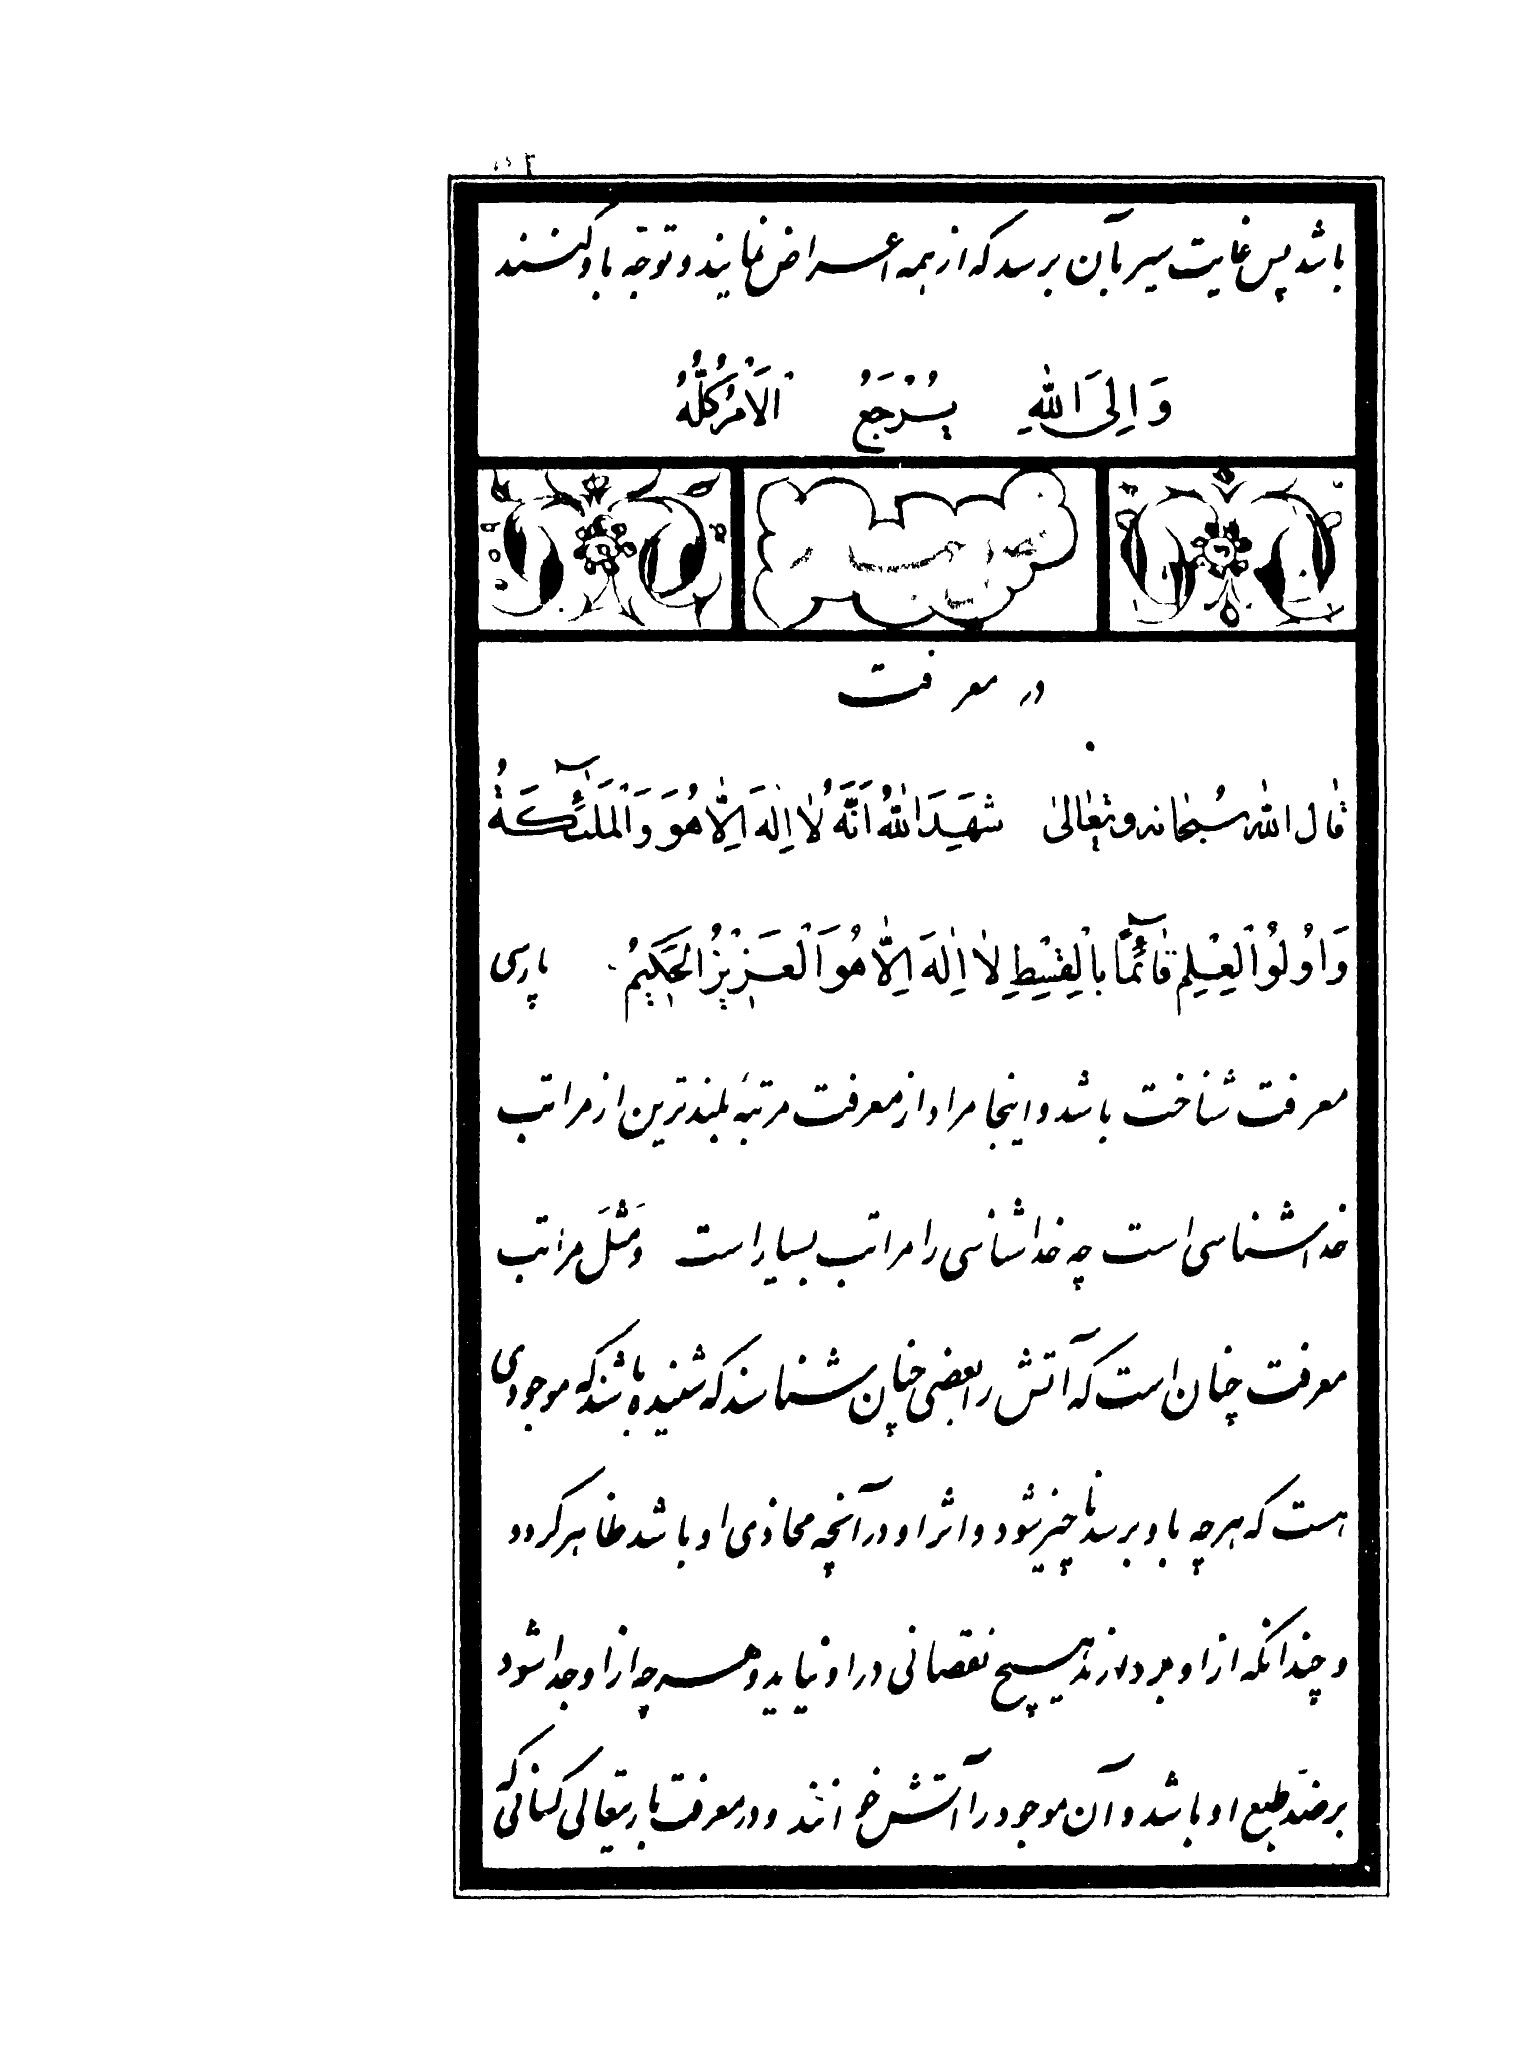 باشد پس غایت سیر بآن برسد که از همه اعراض نمایند و توجّه باو کنند
وَ اِلیَ اللهِ یُرْجَعُ الْاَمْرُ کُلُّهُ
در معرفت
قال الله سُبحانه و تعالیٰ شَهِدَ اللهُ اَنَّهُ لا اِلهَ اِلّا هُوَ وَ الْمَلٰٓئِکَةُ
وَ اُولُوا الْعِلْمِ قآئِماً بِالْقِسْطِ لا اِلهَ اِلّا هُوَ الْعَزیزُ الْحَکیمُ پارسی
معرفت شناخت باشد و اینجا مراد از معرفت مرتبهٔ بلندترین از مراتب
خداشناسی است چه خداشناسی را مراتب بسیار است و مَثَلَ مراتب
معرفت چنان است که آتش را بعضی چنان شناسند که شنیده باشند که موجودی
هست که هر چه باو برسد ناچیز شود و اثر او در آنچه محاذی او باشد ظاهر گردد
و چندانکه از او بردارند هیچ نقصانی در او نیاید و هر چه از او جدا شود
بر ضدّ طبع او باشد و آن موجود را آتش خوانند و در معرفت باریتعالی کسانی که